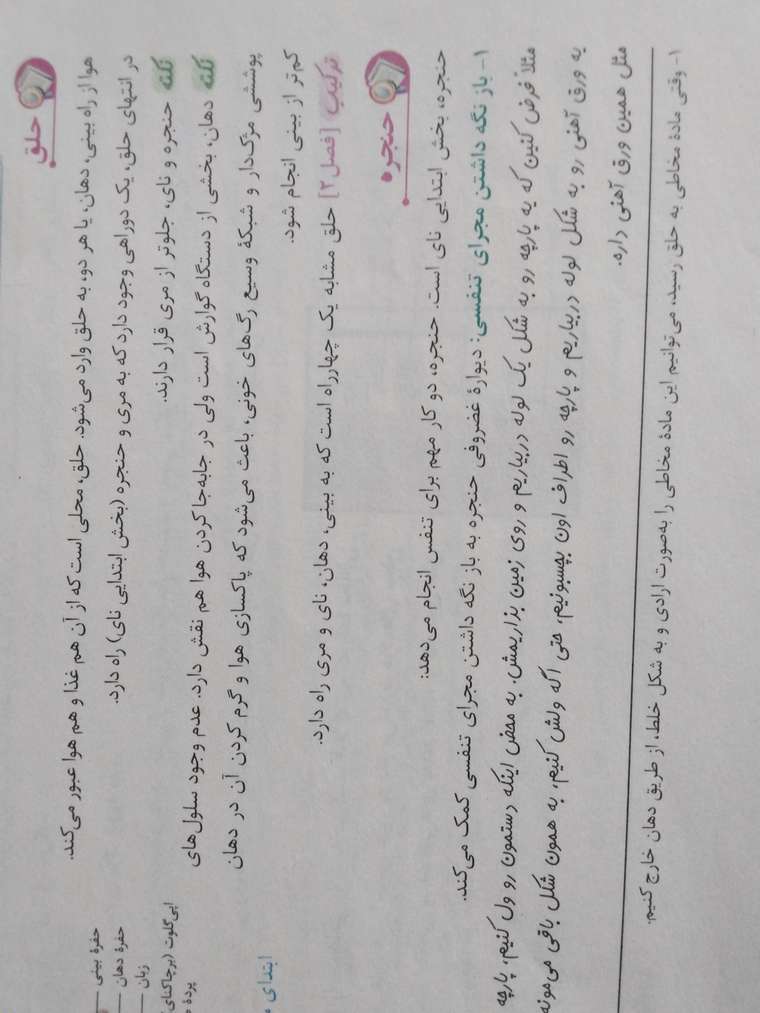 حلق
هوا از راه بینی، دهان، یا هر دو، به حلق وارد می‌شود. حلق، محلی است که از آن هم غذا و هم هوا عبور می‌کند.
در انتهای حلق، یک دوراهی وجود دارد که به مری و حنجره (بخش ابتدایی نای) راه دارد.
نکته حنجره و نای، جلوتر از مری قرار دارند.
نکته دهان، بخشی از دستگاه گوارش است ولی در جابه‌جا کردن هوا هم نقش دارد. عدم وجود سلول‌های
پوششی مژک‌دار و شبکهٔ وسیع رگ‌های خونی، باعث می‌شود که پاکسازی هوا و گرم کردن آن در دهان
کم‌تر از بینی انجام شود.
ترکیب [فصل ۲] حلق مشابه یک چهارراه است که به بینی، دهان، نای و مری راه دارد.
حنجره
حنجره، بخش ابتدایی نای است. حنجره، دو کار مهم برای تنفس انجام می‌دهد:
۱- باز نگه داشتن مجرای تنفسی: دیوارهٔ غضروفی حنجره به باز نگه داشتن مجرای تنفسی کمک می‌کند.
مثلاً فرض کنین که یه پارچه رو به شکل یک لوله دربیاریم و روی زمین بذاریمش. به محض اینکه دستمون رو ول کنیم، پارچه
یه ورق آهنی رو به شکل لوله دربیاریم و پارچه رو اطراف اون بچسبونیم، حتی اگه ولش کنیم، به همون شکل باقی می‌مونه
مثل همین ورق آهنی داره.
۱- وقتی مادهٔ مخاطی به حلق رسید، می‌توانیم این مادهٔ مخاطی را به‌صورت ارادی و به شکل خلط، از طریق دهان خارج کنیم.
حفرهٔ بینی
حفرهٔ دهان
زبان
اپی‌گلوت (برچاکنای
پردهٔ
ابتدای